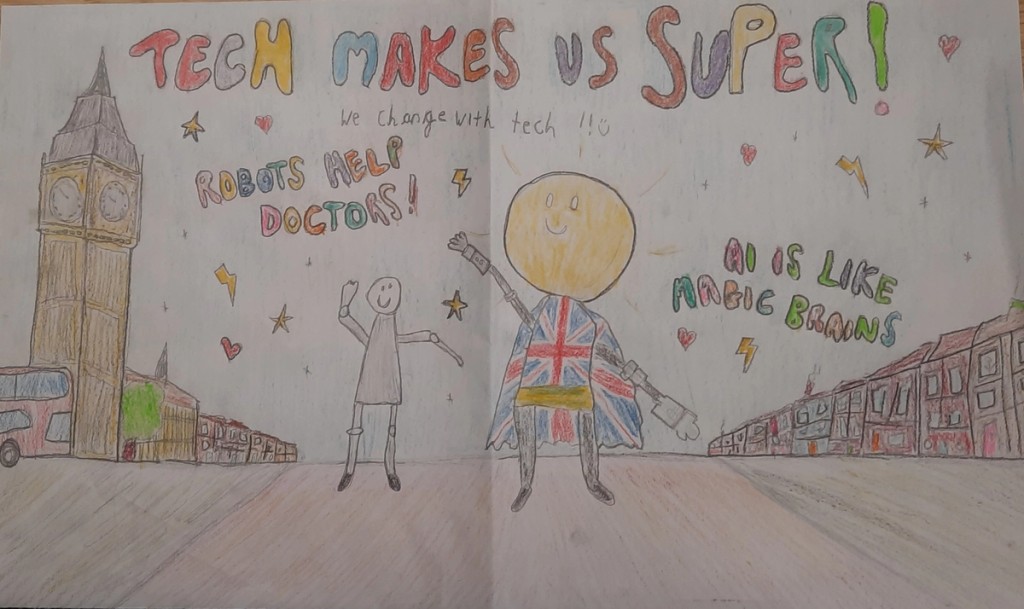 TECH MAKES US SUPER!
We change with tech !!☺
ROBOTS HELP
DOCTORS!
AI IS LIKE
MAGIC BRAINS